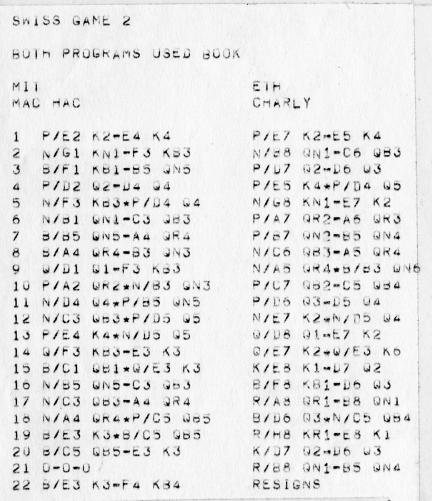 SWISS GAME 2
BOTH PROGRAMS USED BOOK
MIT ETH
MAC HAC CHARLY
1 P/E2 K2-E4 K4 P/E7 K2-E5 K4
2 N/G1 KN1-F3 KB3 N/B8 QN1-C6 QB3
3 B/F1 KB1-B5 QN5 P/D7 Q2-D6 Q3
4 P/D2 Q2-D4 Q4 P/E5 K4*P/D4 Q5
5 N/F3 KB3*P/D4 Q4 N/G8 KN1-E7 K2
6 N/B1 QN1-C3 QB3 P/A7 QR2-A6 QR3
7 B/B5 QN5-A4 QR4 P/B7 QN2-B5 QN4
8 B/A4 QR4-B3 QN3 N/C6 QB3-A5 QR4
9 Q/D1 Q1-F3 KB3 N/A5 QR4*B/B3 QN6
10 P/A2 QR2*N/B3 QN3 P/C7 QB2-C5 QB4
11 N/D4 Q4*P/B5 QN5 P/D6 Q3-D5 Q4
12 N/C3 QB3*P/D5 Q5 N/E7 K2*N/D5 Q4
13 P/E4 K4*N/D5 Q5 Q/D8 Q1-E7 K2
14 Q/F3 KB3-E3 K3 Q/E7 K2*Q/E3 K6
15 B/C1 QB1*Q/E3 K3 K/E8 K1-D7 Q2
16 N/B5 QN5-C3 QB3 B/F8 KB1-D6 Q3
17 N/C3 QB3-A4 QR4 R/A8 QR1-B8 QN1
18 N/A4 QR4*P/C5 QB5 B/D6 Q3*N/C5 QB4
19 B/E3 K3*B/C5 QB5 R/H8 KR1-E8 K1
20 B/C5 QB5-E3 K3 K/D7 Q2-D6 Q3
21 0-0-0 R/B8 QN1-B5 QN4
22 B/E3 K3-F4 KB4 RESIGNS